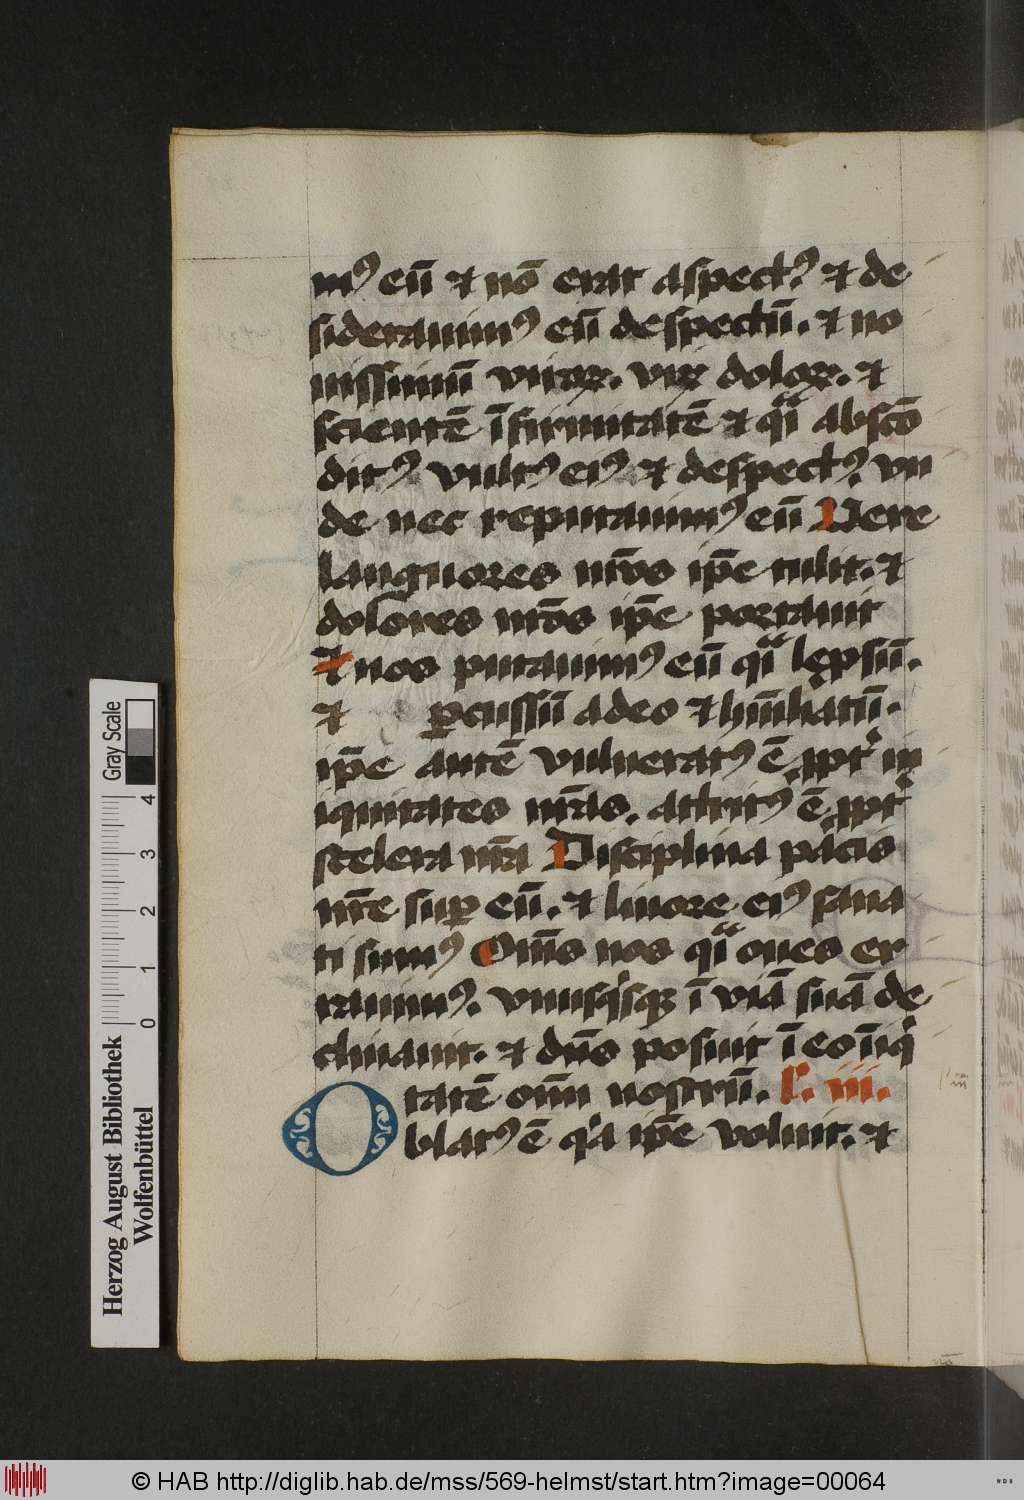 mꝰ eū ⁊ nō erat aspectꝰ ⁊ de
siderauimꝰ eū despectū. ⁊ no
uissimū viroꝝ. virū doloꝝ. ⁊
scientē īfirmitatē ⁊ qͣi abscō
ditꝰ vultꝰ eiꝰ ⁊ despectꝰ. vn
de nec reputauimꝰ eū Vere
languores nr̄os ip̄e tulit. ⁊
dolores nr̄os ip̄e portauit
⁊ nos putauimꝰ eū qͣi lępsū.
⁊ ꝑcussū a deo ⁊ hūiliatū.
ip̄e autē vulneratꝰ ē ꝓpt̉ in
iquitates nr̄as. attritꝰ ē ꝓpt̉
scelera nr̄a Disciplina pacis
nr̄e suꝑ eū. ⁊ liuore eiꝰ sana
ti sumꝰ Om̄s nos qͣi oues er
rauimꝰ. vnusqͥsqꝫ ī viā suā de
clinauit. ⁊ dn̄s posuit ī eo īiqͥ
tatē om̄i nostrū. l'. iii.
Oblatꝰ ē qͥa ip̄e voluit. ⁊
Gray Scale
4
3
2
1
0
Herzog August Bibliothek
Wolfenbüttel
© HAB http://diglib.hab.de/mss/569-helmst/start.htm?image=00064